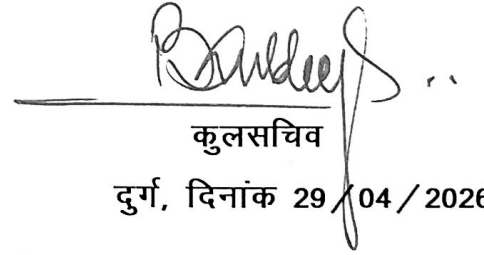 कुलसचिव
दुर्ग, दिनांक 29 / 04 / 2026